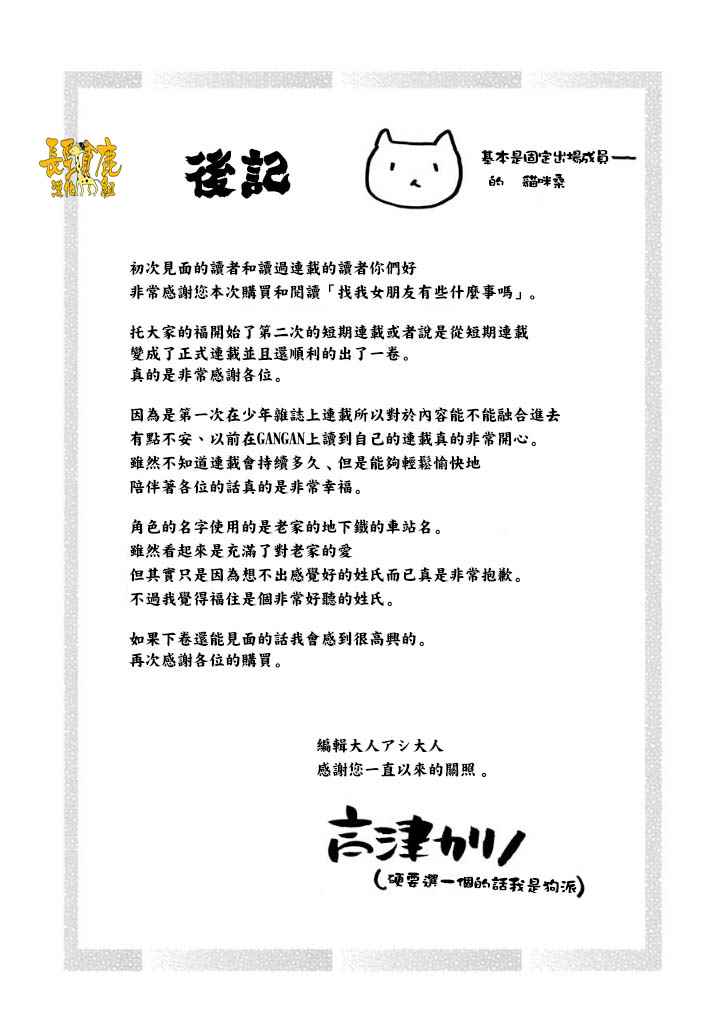 長頸鹿
漢化組
後記
基本是固定出場成員——
的 貓咪桑
初次見面的讀者和讀過連載的讀者你們好
非常感謝您本次購買和閱讀「找我女朋友有些什麼事嗎」。
托大家的福開始了第二次的短期連載或者說是從短期連載
變成了正式連載並且還順利的出了一卷。
真的是非常感謝各位。
因為是第一次在少年雜誌上連載所以對於內容能不能融合進去
有點不安、以前在GANGAN上讀到自己的連載真的非常開心。
雖然不知道連載會持續多久、但是能夠輕鬆愉快地
陪伴著各位的話真的是非常幸福。
角色的名字使用的是老家的地下鐵的車站名。
雖然看起來是充滿了對老家的愛
但其實只是因為想不出感覺好的姓氏而已真是非常抱歉。
不過我覺得福住是個非常好聽的姓氏。
如果下卷還能見面的話我會感到很高興的。
再次感謝各位的購買。
編輯大人アシ大人
感謝您一直以來的關照。
高津カリノ
(硬要選一個的話我是狗派)